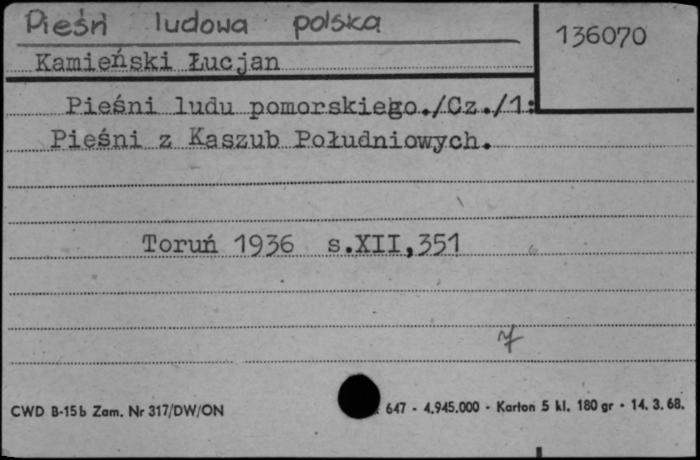 Pieśń ludowa polska
136070
Kamieński Łucjan
Pieśni ludu pomorskiego./Cz./1:
Pieśni z Kaszub Południowych.
Toruń 1936 s.XII,351
CWD B-15b Zam. Nr 317/DW/ON
647 - 4.945.000 - Karton 5 kl. 180 gr - 14. 3. 68.